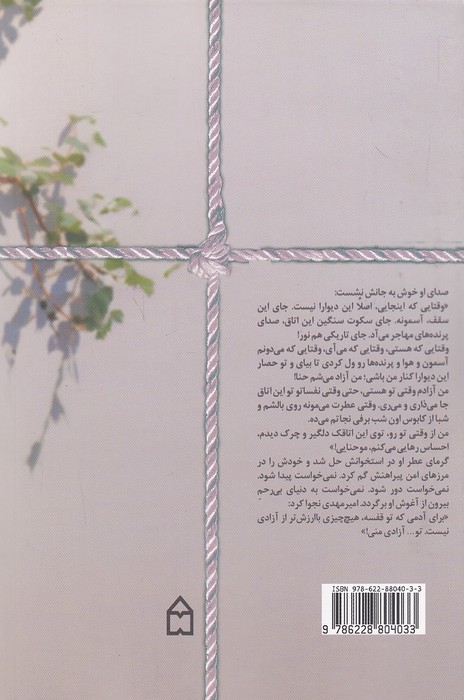 صدای او خوش به جانش نشست:
«وقتایی که اینجایی، اصلاً این دیوارا نیست. جای این
سقف، آسمونه. جای سکوت سنگین این اتاق، صدای
پرنده‌های مهاجر می‌آد. جای تاریکی هم نور!
وقتایی که هستی، وقتایی که می‌آی، وقتایی که می‌دونم
آسمون و هوا و پرنده‌ها رو ول کردی تا بیای و تو حصار
این دیوارا کنار من باشی؛ من آزاد می‌شم حنا!
من آزادم وقتی تو هستی، حتی وقتی نفساتو تو این اتاق
جا می‌ذاری و می‌ری. وقتی عطرت می‌مونه روی بالشم و
شبا از کابوس اون شب برفی نجاتم می‌ده.
من از وقتی تو رو، توی این اتاقک دلگیر و چرک دیدم،
احساس رهایی می‌کنم، موحنایی!»
گرمای عطر او در استخوانش حل شد و خودش را در
مرزهای امن پیراهنش گم کرد. نمی‌خواست پیدا شود.
نمی‌خواست دور شود. نمی‌خواست به دنیای بی‌رحم
بیرون از آغوش او برگردد. امیرمهدی نجوا کرد:
«برای آدمی که تو قفسه، هیچ‌چیزی باارزش‌تر از آزادی
نیست. تو... آزادی منی!»
ISBN 978-622-88040-3-3
9 786228 804033